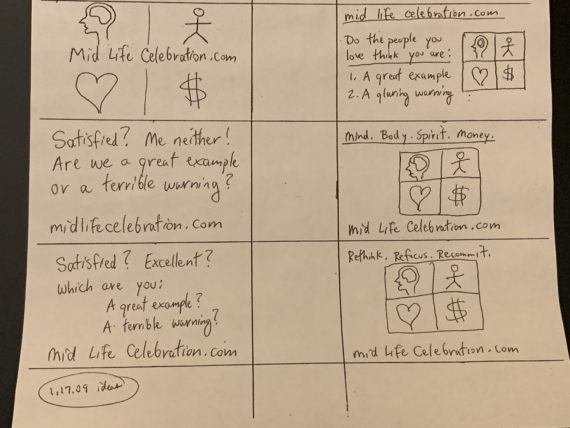 Mid Life Celebration.com
$
Satisfied? Me neither!
Are we a great example
or a terrible warning?
midlifecelebration.com
Satisfied? Excellent?
Which are you:
A great example?
A terrible warning?
Mid Life Celebration.com
1.17.09 ideas
mid life celebration.com
Do the people you
love think you are:
1. A great example
2. A glaring warning
$
Mind. Body. Spirit. Money.
$
Mid Life Celebration.com
Rethink. Refocus. Recommit.
$
Mid Life Celebration.com